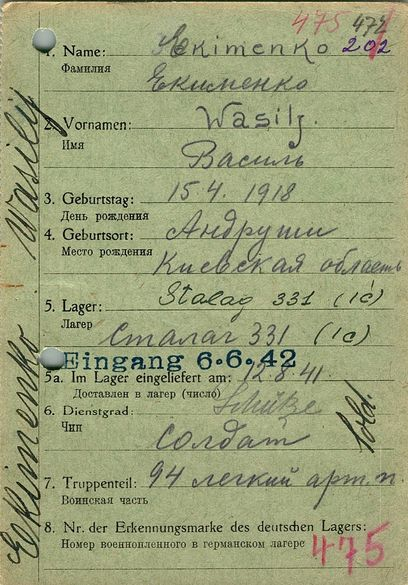 475 472
1. Name: Jekimenko 202
Фамилия
Екименко
2. Vornamen: Wasilj
Имя
Василь
3. Geburtstag: 15.4. 1918
День рождения
4. Geburtsort: Андруши
Место рождения
Киевская область
5. Lager: Stalag 331 (1c)
Лагер
Сталаг 331 (1c)
Eingang 6.6.42
5a. Im Lager eingeliefert am: 12.8.41.
Доставлен в лагер (число)
6. Dienstgrad: Schütze
Чин
Солдат
7. Truppenteil: 94 легкий арт.п.
Воинская часть
8. Nr. der Erkennungsmarke des deutschen Lagers:
Номер военнопленного в германском лагере
475
Ekimenko Wasilij